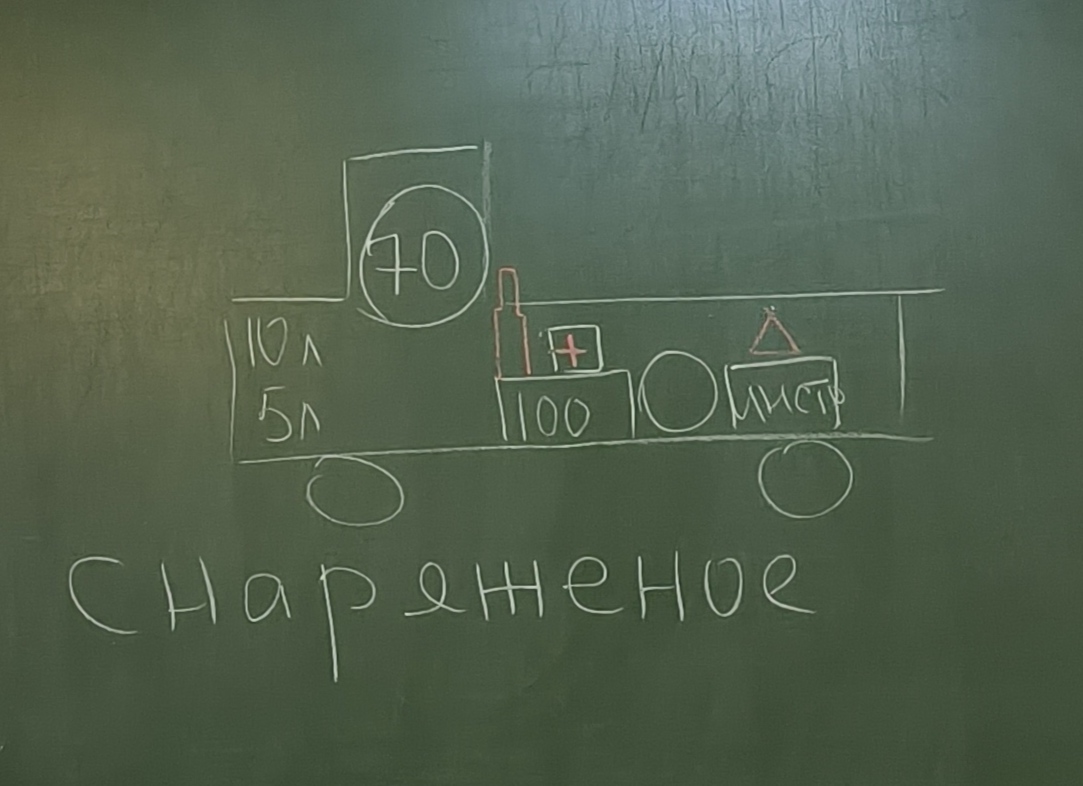 70
10л
5л
100
инстр
Снаряженое